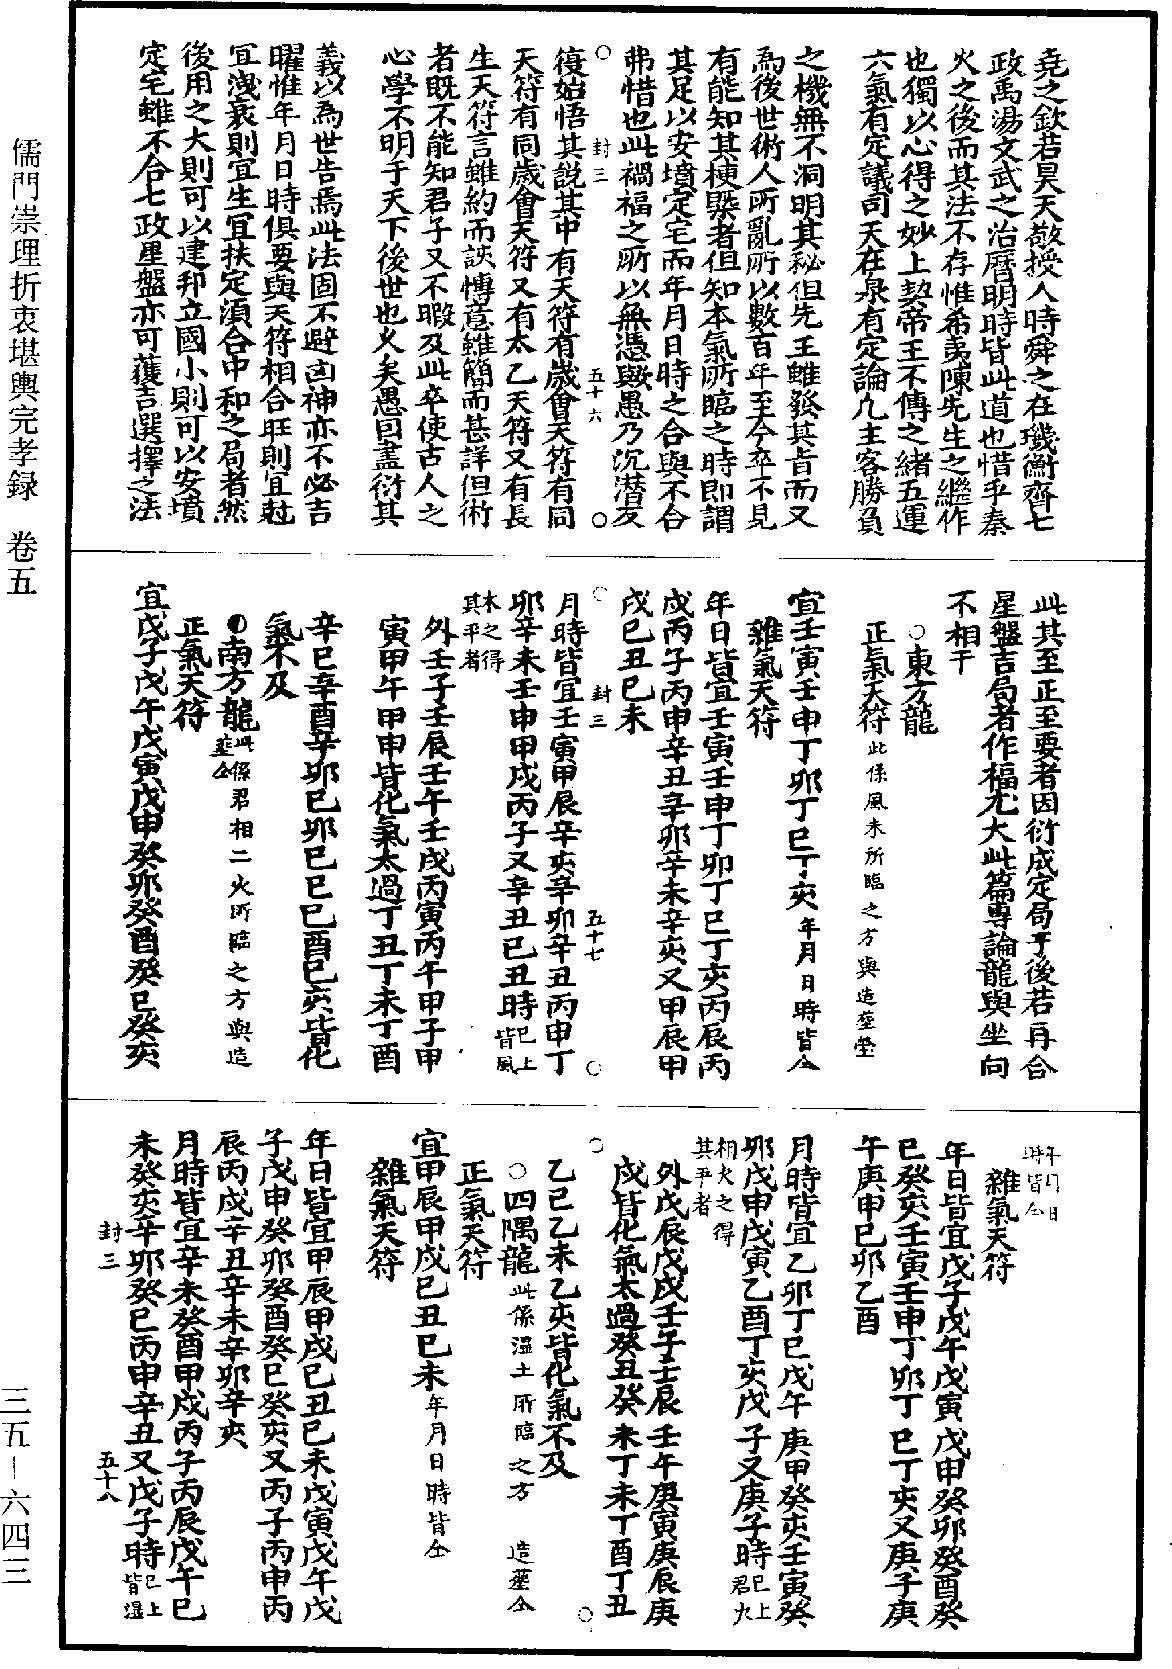 堯之欽若昊天敬授人時舜之在璣衡齊七
政禹湯文武之治曆明時皆此道也惜乎秦
火之後而其法不存惟希夷陳先生之繼作
也獨以心得之妙上契帝王不傳之緒五運
六氣有定議司天在泉有定論凢主客勝負
之機無不洞明其秘但先王雖發其旨而又
為後世術人所亂所以數百年至今卒不見
有能知其梗槩者但知本氣所臨之時即謂
其足以安墳定宅而年月日時之合與不合
弗惜也此禍福之所以無憑歟愚乃沉潜友
封三 五十六
復始悟其說其中有天符有歲會天符有同
天符有同歲會天符又有太乙天符又有長
生天符言雖約而該愽意雖簡而甚詳但術
者既不能知君子又不暇及此卒使古人之
心學不明于天下後世也乆矣愚因盡衍其
義以為世告焉此法固不避凶神亦不必吉
曜惟年月日時俱要與天符相合旺則宜尅
宜洩衰則宜生宜扶定湏合中和之局者然
後用之大則可以建邦立國小則可以安墳
定宅雖不合七政星盤亦可獲吉選擇之法
此其至正至要者因衍成定局于後若再合
星盤吉局者作福尤大此篇專論龍與坐向
不相干
○東方龍
正氣天符此係風木所臨之方與造塟營
宜壬寅壬申丁卯丁巳丁亥年月日時皆仝
雜氣天符
年日皆宜壬寅壬申丁卯丁巳丁亥丙辰丙
戌丙子丙申辛丑辛卯辛未辛亥又甲辰甲
戌巳丑巳未
封三 五十七
月時皆宜壬寅甲辰辛亥辛卯辛丑丙申丁
卯辛未壬申甲戌丙子又辛丑巳丑時巳上皆風
木之得其平者
外壬子壬辰壬午壬戌丙寅丙午甲子甲
寅甲午甲申皆化氣太過丁丑丁未丁酉
辛巳辛酉辛卯巳卯巳巳巳酉巳亥皆化
氣不及
●南方龍此係君相二火所臨之方與造塟仝
正氣天符
宜戊子戊午戊寅戊申癸卯癸酉癸巳癸亥
年月日時皆仝
雜氣天符
年日皆宜戊子戊午戊寅戊申癸卯癸酉癸
巳癸亥壬寅壬申丁卯丁巳丁亥又庚子庚
午庚申巳卯乙酉
月時皆宜乙卯丁巳戊午庚甲癸亥壬寅癸
卯戊申戊寅乙酉丁亥戊子又庚子時巳上君火
相火之得其平者
外戊辰戊戌壬子壬辰壬午庚寅庚辰庚
戌皆化氣太過癸丑癸未丁未丁酉丁丑
乙巳乙未乙亥皆化氣不及
○四隅龍此係溫土所臨之方造塟仝
正氣天符
宜甲辰甲戌巳丑巳未年月日時皆仝
雜氣天符
年日皆宜甲辰甲戌巳丑巳未戊寅戊午戊
子戊申癸卯癸酉癸巳癸亥又丙子丙申丙
辰丙戌辛丑辛未辛卯辛亥
月時皆宜辛未癸酉甲戌丙子丙辰戊午巳
未癸亥辛卯癸巳丙申辛丑又戊子時巳上皆溫
封三 五十八
儒門崇理折衷堪輿完孝録 卷五
三五-六四三